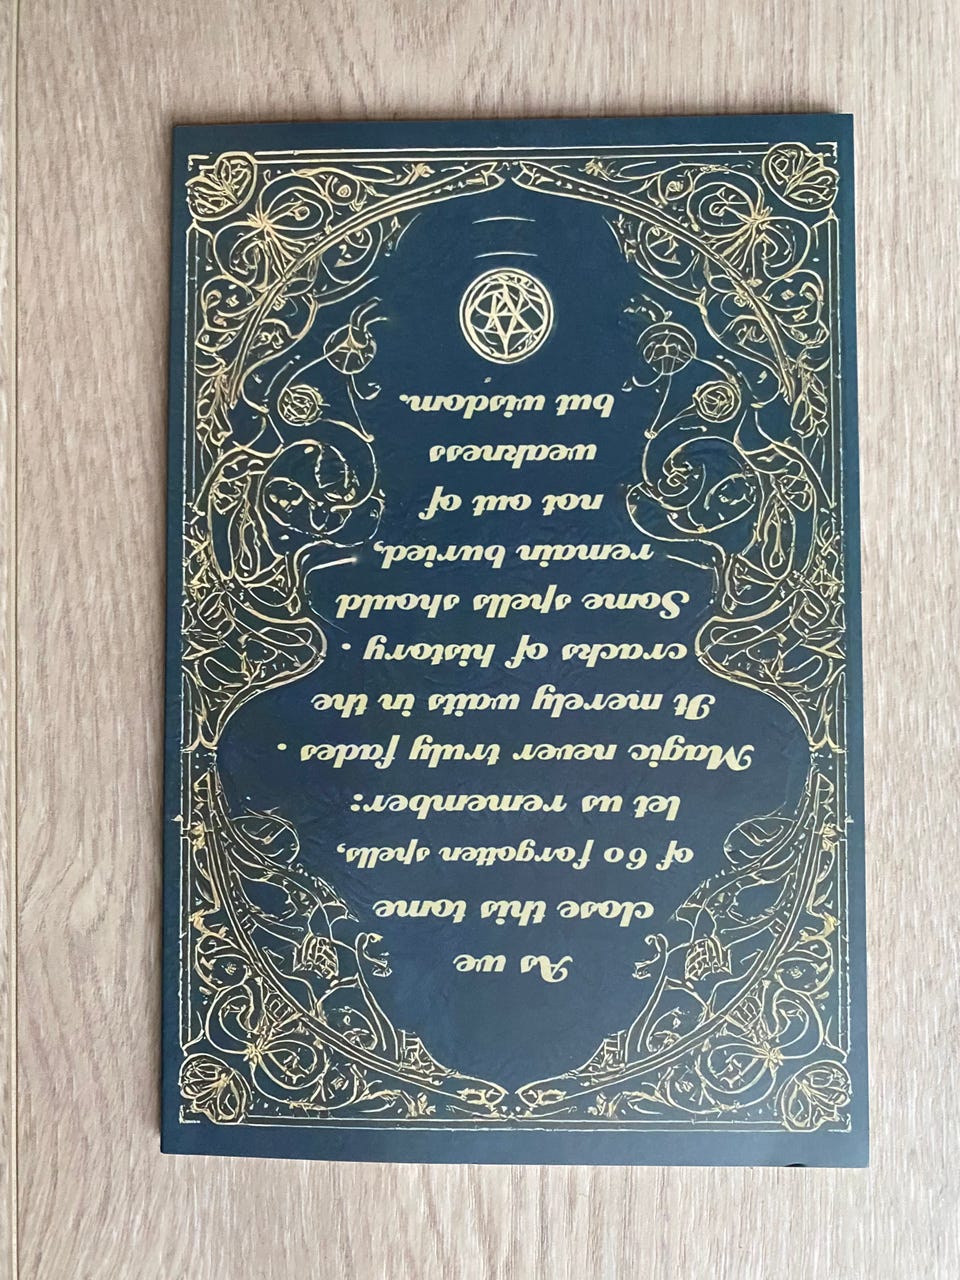 As we
close this tome
of 60 forgotten spells,
let us remember:
Magic never truly fades .
It merely waits in the
cracks of history .
Some spells should
remain buried,
not out of
weakness
but wisdom.